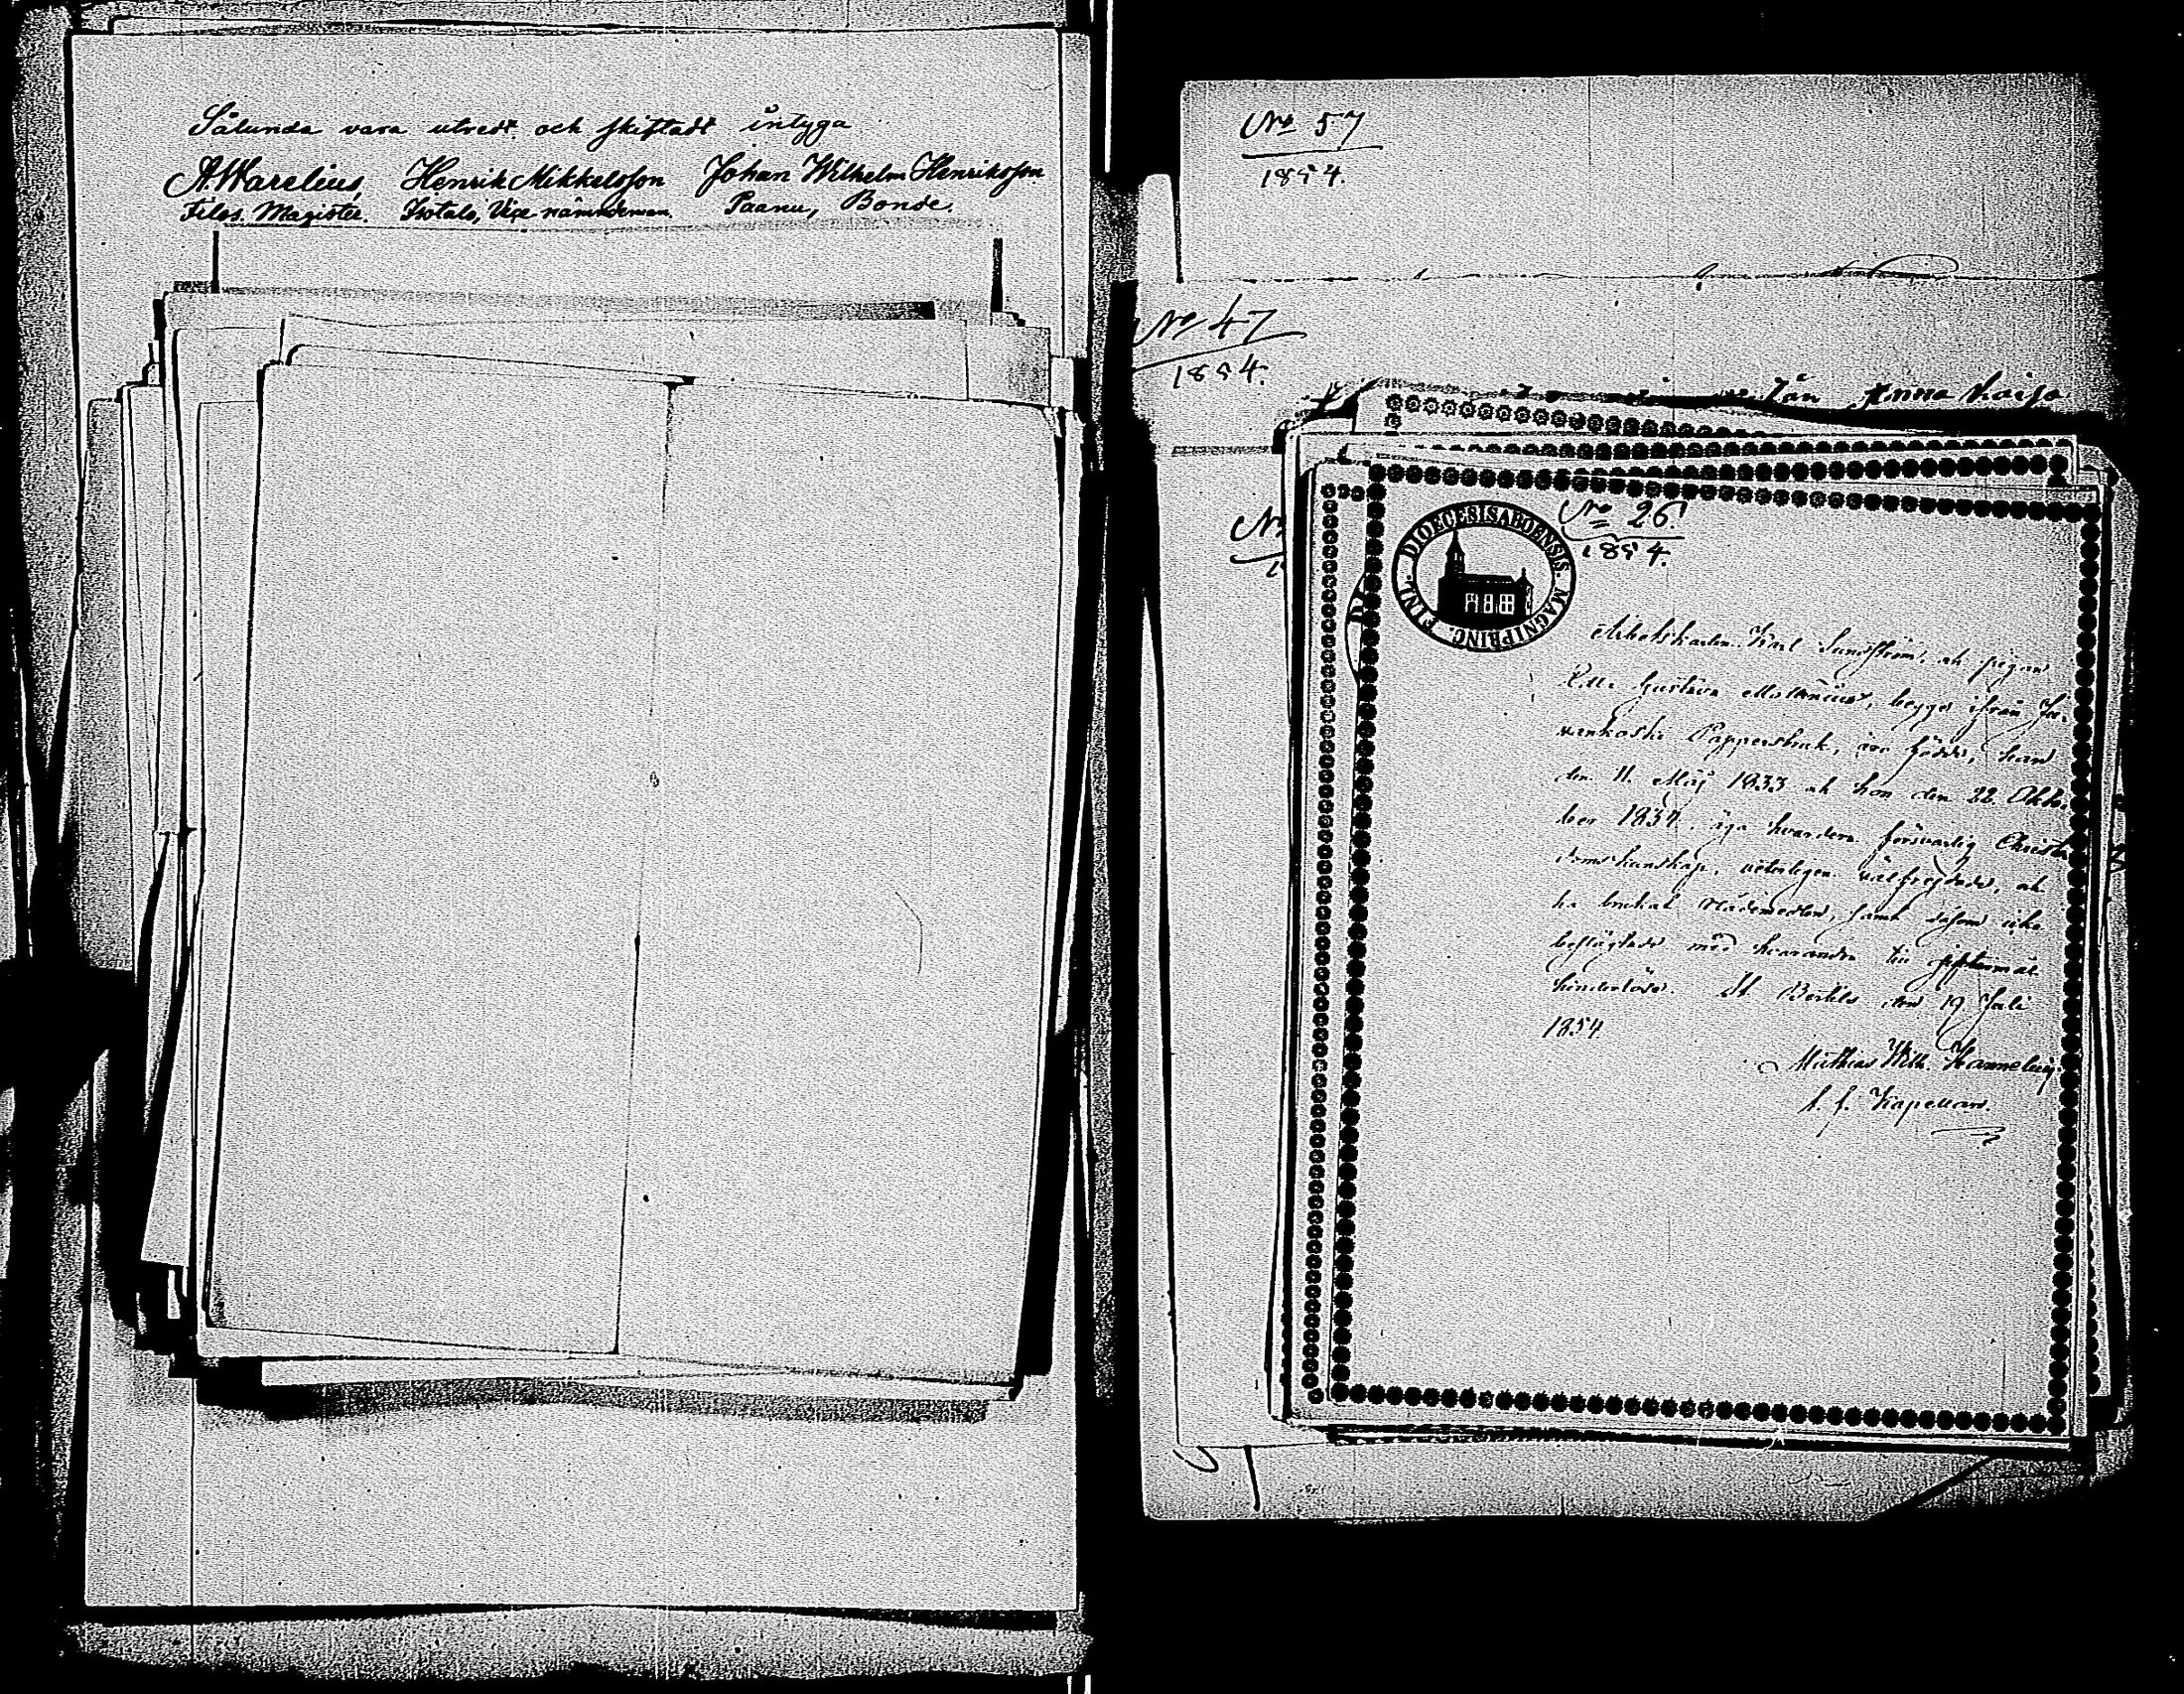 Sålunda vara utredt och skiftadt intyga
A. Warelius, Henrik Mikkelsson Johan Wilhelm Henriksson
Filos. Magister. Isotalo, Vice nämndeman. Paanu, Bonde.
No 57
1854.
No 47
1854.
Anna Kaisa
DIOECESIS ABOENSIS. MAGNI PRINC. FINL.
No 26.
1854.
Arbetskarlen Karl Sundström, och pigan
Gustava, begge ifrån Jär-
venkoski Pappersbruk, äro födde, han
den 11 Maj 1833 och hon den 22 Okto-
ber 1834, äga hvardera försvarlig Christen-
domskunskap, veterligen välfrejdade, och
ha brukat nådemedlen, samt såsom icke
beslägtade med hvarandra till giftermål
hinderlöse. St. Bertils den 19 Juli
1854.
Mathias Wilh.
t. f. Kapellan.